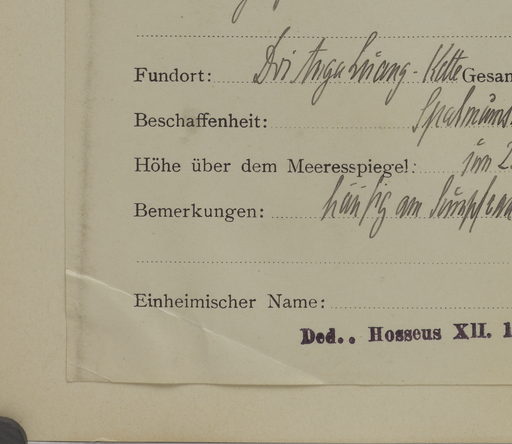 Fundort: Doi Anga Luang-Kette Gesam
Beschaffenheit:
Höhe über dem Meeresspiegel: um
Bemerkungen: häufig am
Einheimischer Name:
Ded.. Hosseus XII. 1